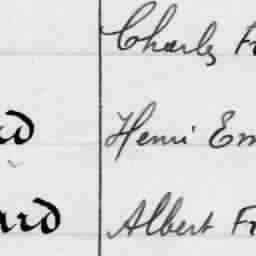 Charles F
rd Henri Em
ard Albert Fr